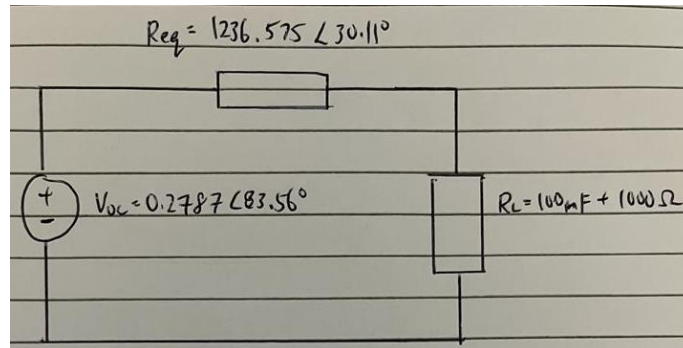 Req = 1236.575 ∠30.11°
+
-
Voc = 0.2787 ∠83.56°
RL = 100mF + 1000 Ω